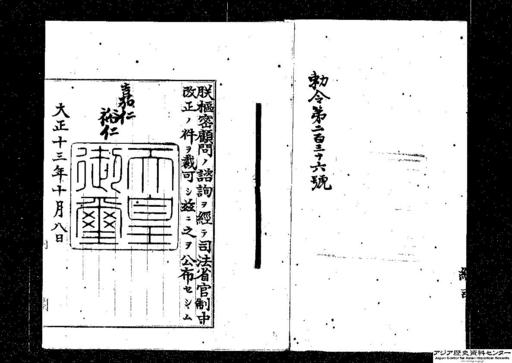 勅令第二百三十六號
朕樞密顧問ノ諮詢ヲ經テ司法省官制中
改正ノ件ヲ裁可シ茲ニ之ヲ公布セシム
嘉仁
裕仁
天皇
御璽
大正十三年十月八日
アジア歴史資料センター
Japan Center for Asian Historical Records